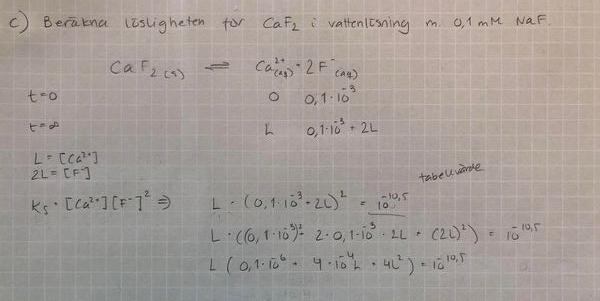 c) Beräkna lösligheten för CaF₂ i vattenlösning m. 0,1 mM NaF.
CaF₂ (s) ⇌ Ca²⁺(aq) + 2F⁻(aq)
t=0 0 0,1·10⁻³
t=∞ L 0,1·10⁻³ + 2L
L = [Ca²⁺]
2L = [F⁻]
tabellvärde
Ks = [Ca²⁺][F⁻]² ⇒ L · (0,1·10⁻³ + 2L)² = 10⁻¹⁰,⁵
L · ((0,1·10⁻³)² + 2·0,1·10⁻³ · 2L + (2L)²) = 10⁻¹⁰,⁵
L (0,1·10⁻⁶ + 4·10⁻⁴L + 4L²) = 10⁻¹⁰,⁵